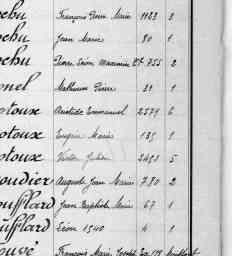 chu François Pierre Marie 1123 2
chu Jean Marie 80 1
chu Pierre Léon Maximin 755 2
nel Mathurin Pierre 21 1
toux Aristide Emmanuel 2579 6
toux Eugène Marie 135 1
toux Victor Julien 5
oudier Auguste Jean Marie 780 2
oufflard Jean Baptiste Marie 67 1
oufflard Léon 1540 4 1
ouvé François Marie Joseph